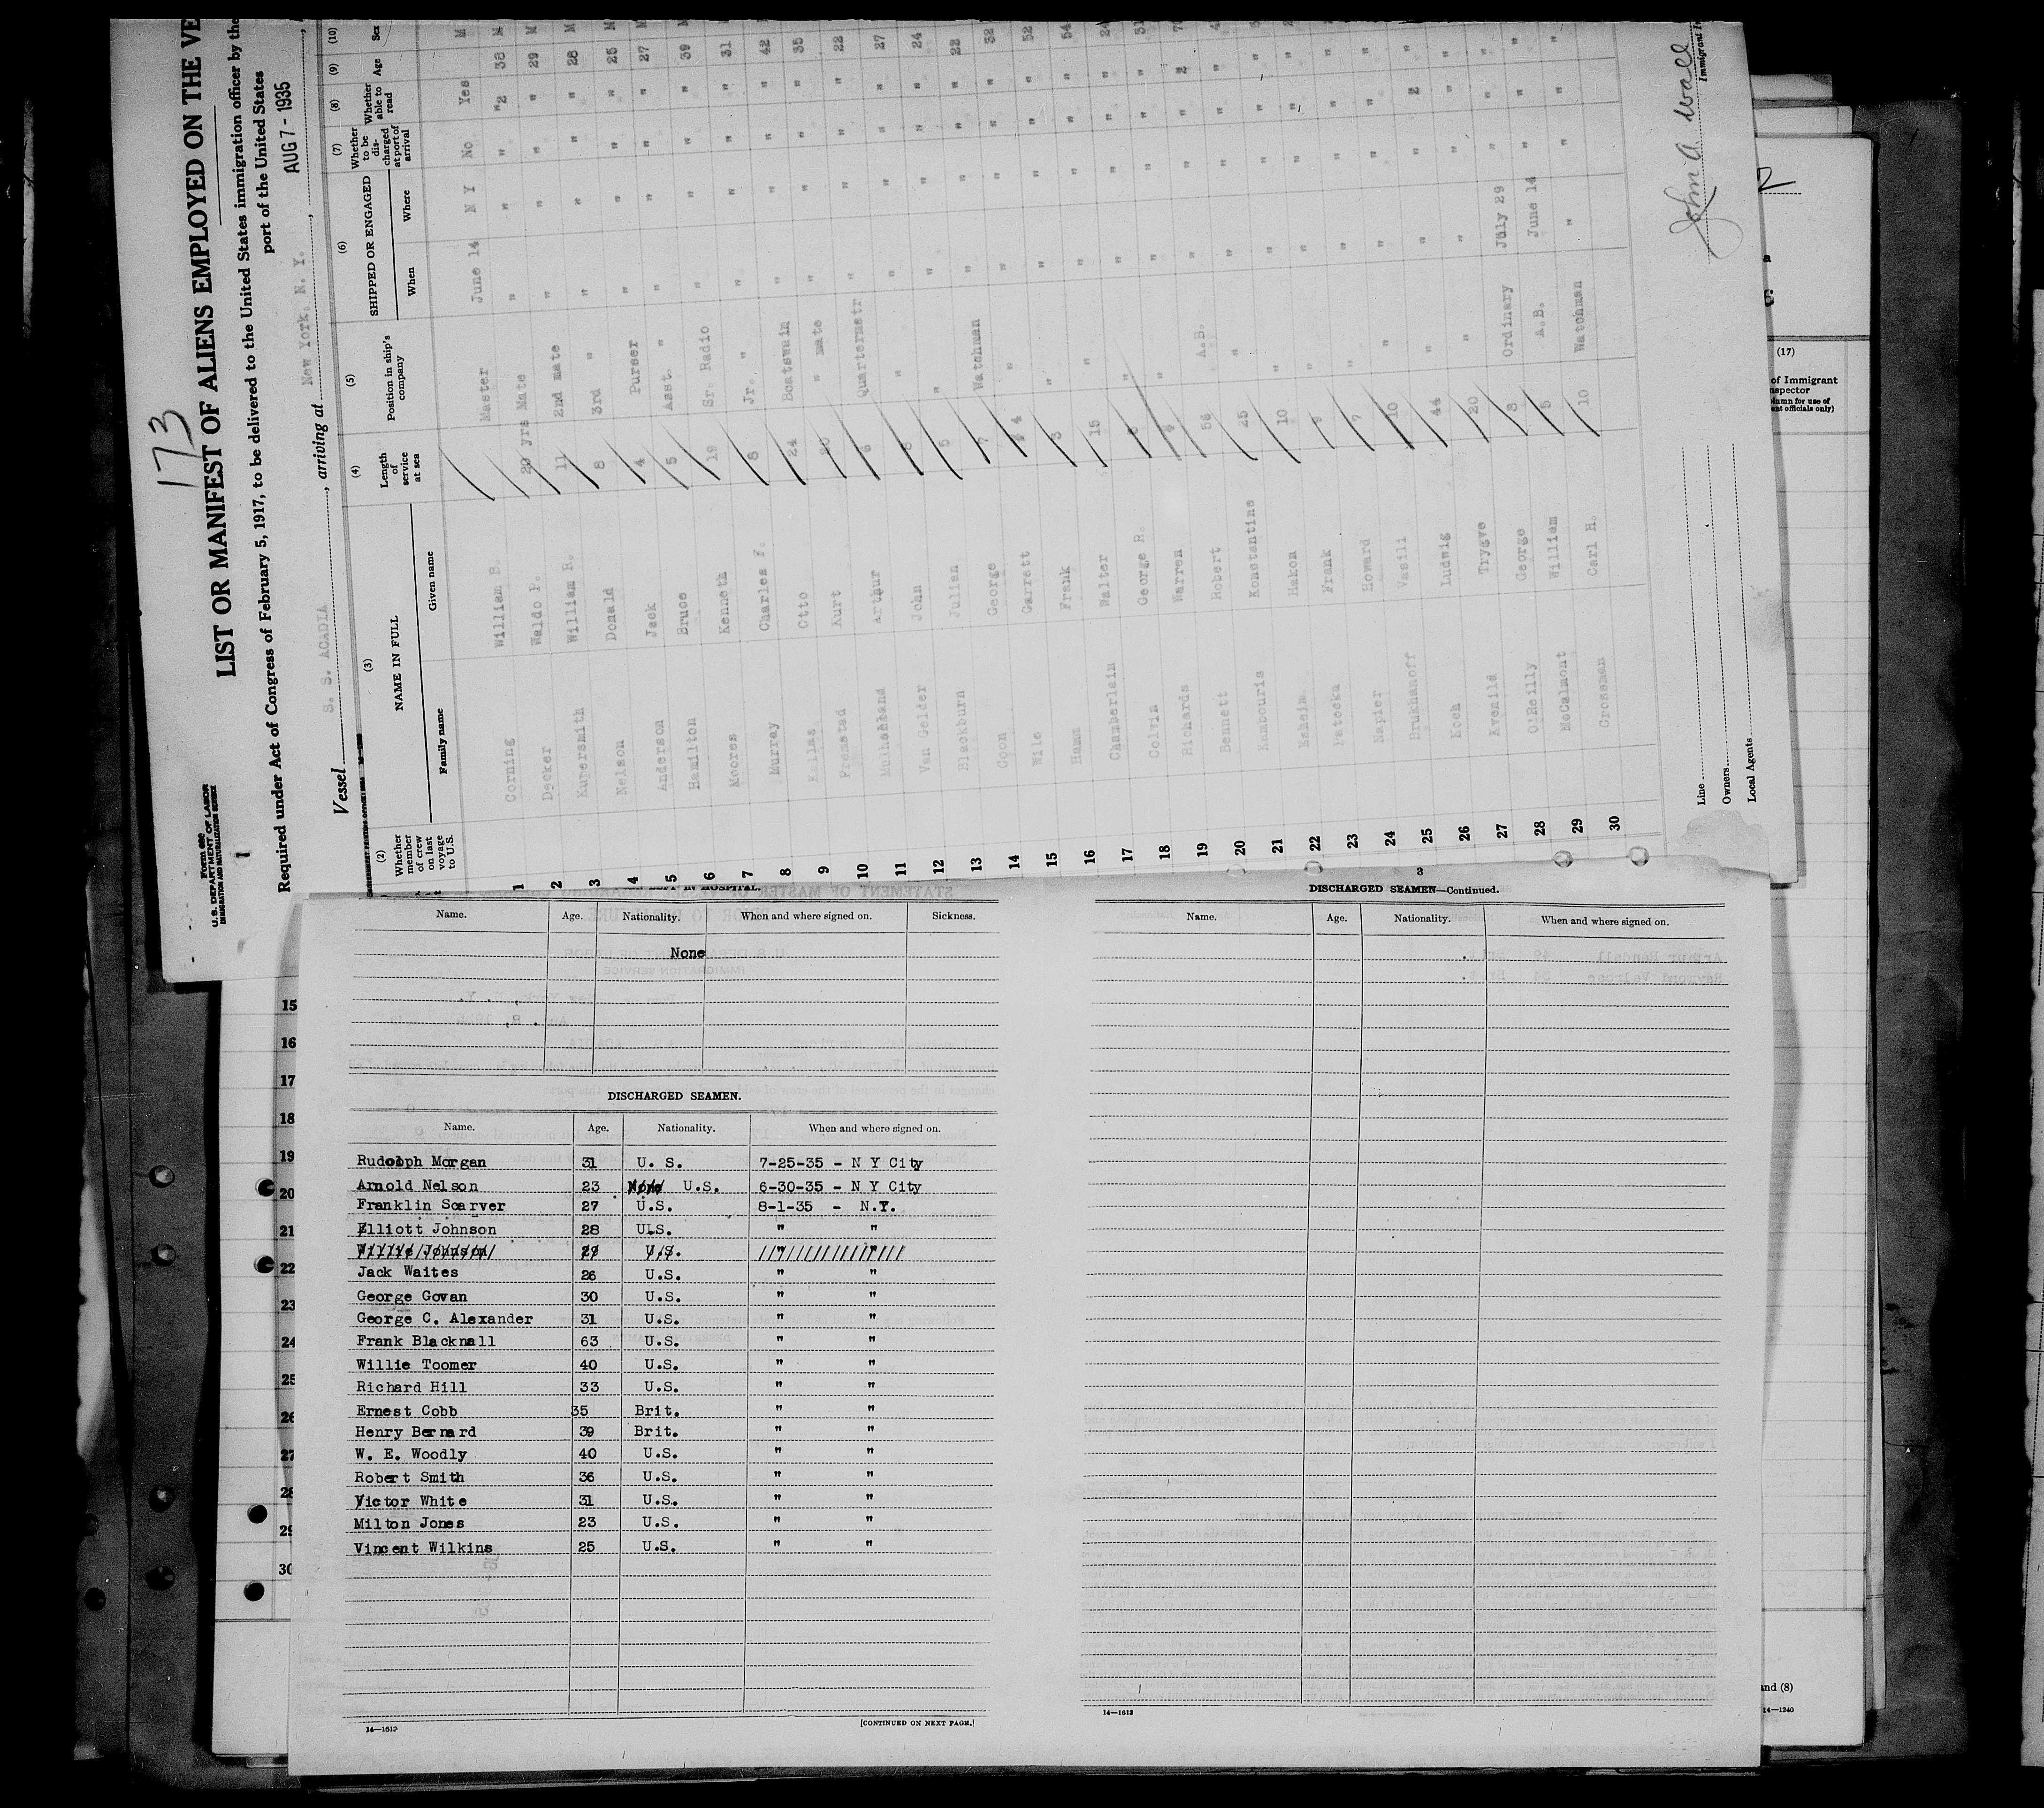 173
Form 689
U. S. DEPARTMENT OF LABOR
IMMIGRATION AND NATURALIZATION SERVICE
1
LIST OR MANIFEST OF ALIENS EMPLOYED ON THE VE
Required under Act of Congress of February 5, 1917, to be delivered to the United States immigration officer by the
port of the United States
Vessel S. S. ACADIA, arriving at New York, N. Y., AUG 7 - 1935,
(2) (3) (4) (5) (6) (7) (8) (9) (10)
Whether member of crew on last voyage to U.S.
NAME IN FULL
Family name Given name
Length of service at sea
Position in ship's company
SHIPPED OR ENGAGED
When Where
Whether to be discharged at port of arrival
Whether able to read
Age
Sex
Master June 14 N Y No Yes M
1 Corning William B. 20 yrs Mate " " " "2 38 M
2 Decker Waldo P. 11 2nd mate " " " " 29 M
3 Kupersmith William R. 8 3rd " " " " " 28 M
4 Nelson Donald 4 Purser " " " " 25 M
5 Anderson Jack 5 Asst. " " " " " 27 M
6 Hamilton Bruce 19 Sr. Radio " " " " 39 M
7 Moores Kenneth 8 Jr. " " " " " 31
8 Murray Charles F. 24 Boatswain " " " " 42
9 Otto " mate " " " " 35
10 Fremstad Kurt 6 Quartermstr " " " " 22
11 Arthur " " " " " 27
12 Van Gelder John 5 " " " " " 24
13 Blackburn Julian 7 Watchman " " " " 22
14 Coon George " " " " " 32
15 Wile Garrett 3 " " " " " 52
16 Hamm Frank 15 " " " " " 54
17 Chamberlain Walter " " " " " 24
18 Colvin George R. " " " " " 31
19 Richards Warren 56 A.B. " " " 2
20 Bennett Robert 25 " " " " "
21 Kambouris Konstantine 10 " " " " "
22 Hakon 9 " " " " "
23 Frank 7 " " " " "
24 Napier Howard 10 " " " " "
25 Brukhanoff Vasili 44 " " " " 2
26 Koch Ludwig 20 " " " " "
27 Evenild Trygve 8 Ordinary July 29 " " "
28 O'Reilly George 5 A.B. June 14 " " "
29 McCalmont William 10 Watchman " " " "
30 Crossman Carl H.
Line
Owners
Local Agents
John A Wall
Immigrant I
2
(17)
of Immigrant
nspector
lumn for use of
ent officials only)
LEFT IN HOSPITAL.
Name. Age. Nationality. When and where signed on. Sickness.
None
DISCHARGED SEAMEN.
Name. Age. Nationality. When and where signed on.
Rudolph Morgan 31 U. S. 7-25-35 - N Y City
Arnold Nelson 23 U.S. 6-30-35 - N Y City
Franklin Scarver 27 U.S. 8-1-35 - N.Y.
Elliott Johnson 28 U.S. " "
Willie Johnson 29 U.S. " "
Jack Waites 26 U.S. " "
George Govan 30 U.S. " "
George C. Alexander 31 U.S. " "
Frank Blacknall 63 U.S. " "
Willie Toomer 40 U.S. " "
Richard Hill 33 U.S. " "
Ernest Cobb 35 Brit. " "
Henry Bernard 39 Brit. " "
W. E. Woodly 40 U.S. " "
Robert Smith 36 U.S. " "
Victor White 31 U.S. " "
Milton Jones 23 U.S. " "
Vincent Wilkins 25 U.S. " "
14—1613 [CONTINUED ON NEXT PAGE.]
3
DISCHARGED SEAMEN—Continued.
Name. Age. Nationality. When and where signed on.
14—1613
15
16
17
18
19
20
21
22
23
24
25
26
27
28
29
30
and (8)
14—1240